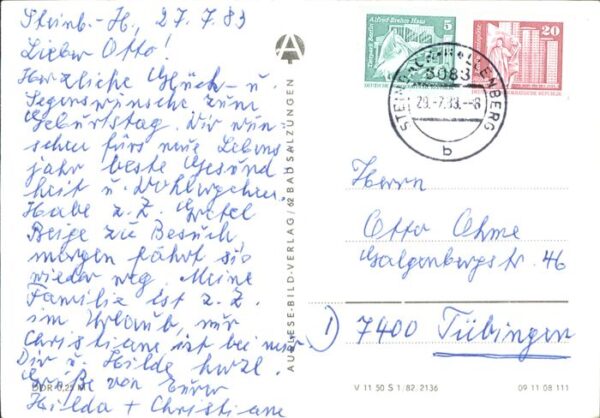 Steinb.-H., 27.7.83
Lieber Otto!
Herzliche Glück- u.
Segenswünsche zum
Geburtstag. Wir wün-
schen fürs neue Lebens
jahr beste Gesund
heit u. Wohlergehen.
Habe z. Z. Gretel
Beige zu Besuch
morgen fährt sie
wieder weg. Meine
Familie ist z. Z.
im Urlaub, nur
Christiane ist bei mir.
Dir u. Hilde herzl.
Grüße von Eurer
Hilda + Christiane
DDR 0,25 M
AUSLESE-BILD-VERLAG/62 BAD SALZUNGEN
Alfred-Brehm-Haus
Tierpark Berlin
5
20
STEINBACH-HALLENBERG
6083
29.-7.83.-8
b
Herrn
Otto Ohme
Galgenbergstr. 46
1) 7400 Tübingen
V 11 50 S 1/82. 2136
09 11 08 111